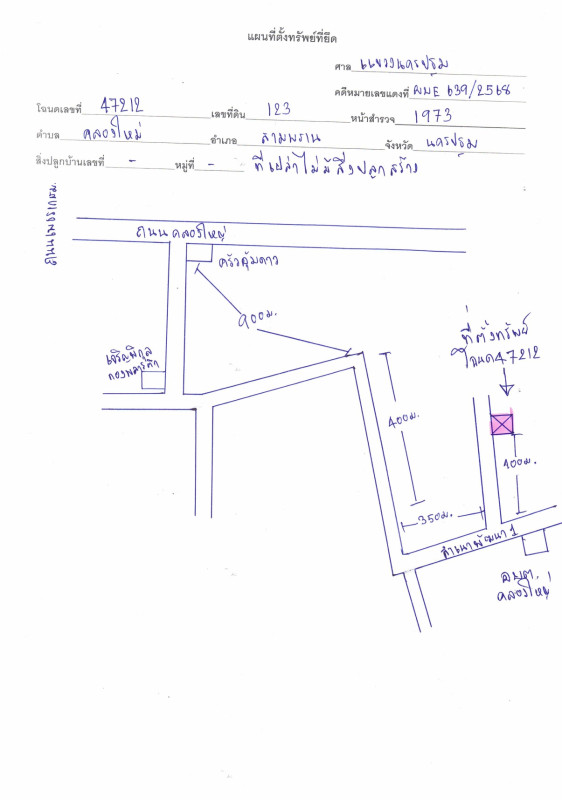 แผนที่ตั้งทรัพย์ที่ยึด
ศาล แขวงนครปฐม
คดีหมายเลขแดงที่ ผบE 639/2568
โฉนดเลขที่ 47212 เลขที่ดิน 123 หน้าสำรวจ 1973
ตำบล คลองใหม่ อำเภอ สามพราน จังหวัด นครปฐม
สิ่งปลูกบ้านเลขที่ - หมู่ที่ - ที่เปล่าไม่มีสิ่งปลูกสร้าง
ถนนเพชรเกษม
ถนนคลองใหม่
ครัวคุ้มดาว
900ม.
ที่ตั้งทรัพย์
โฉนด47212
400ม.
100ม.
350ม.
1
อบต.
คลองใหม่